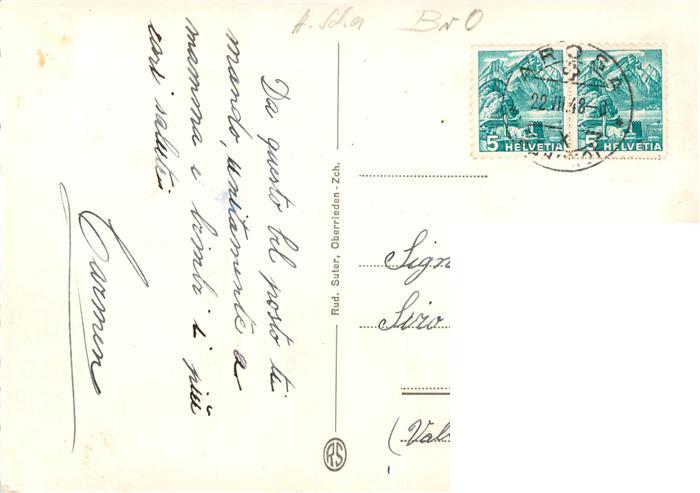 A. Scha BrO
Da questo bel posto ti
mando, unitamente a
mamma e bimbi i più
cari saluti
Carmen
Rud. Suter, Oberrieden-Zch.
RS
5 HELVETIA
5 HELVETIA
22.VII.48-8
Sign
Siro
(Vals